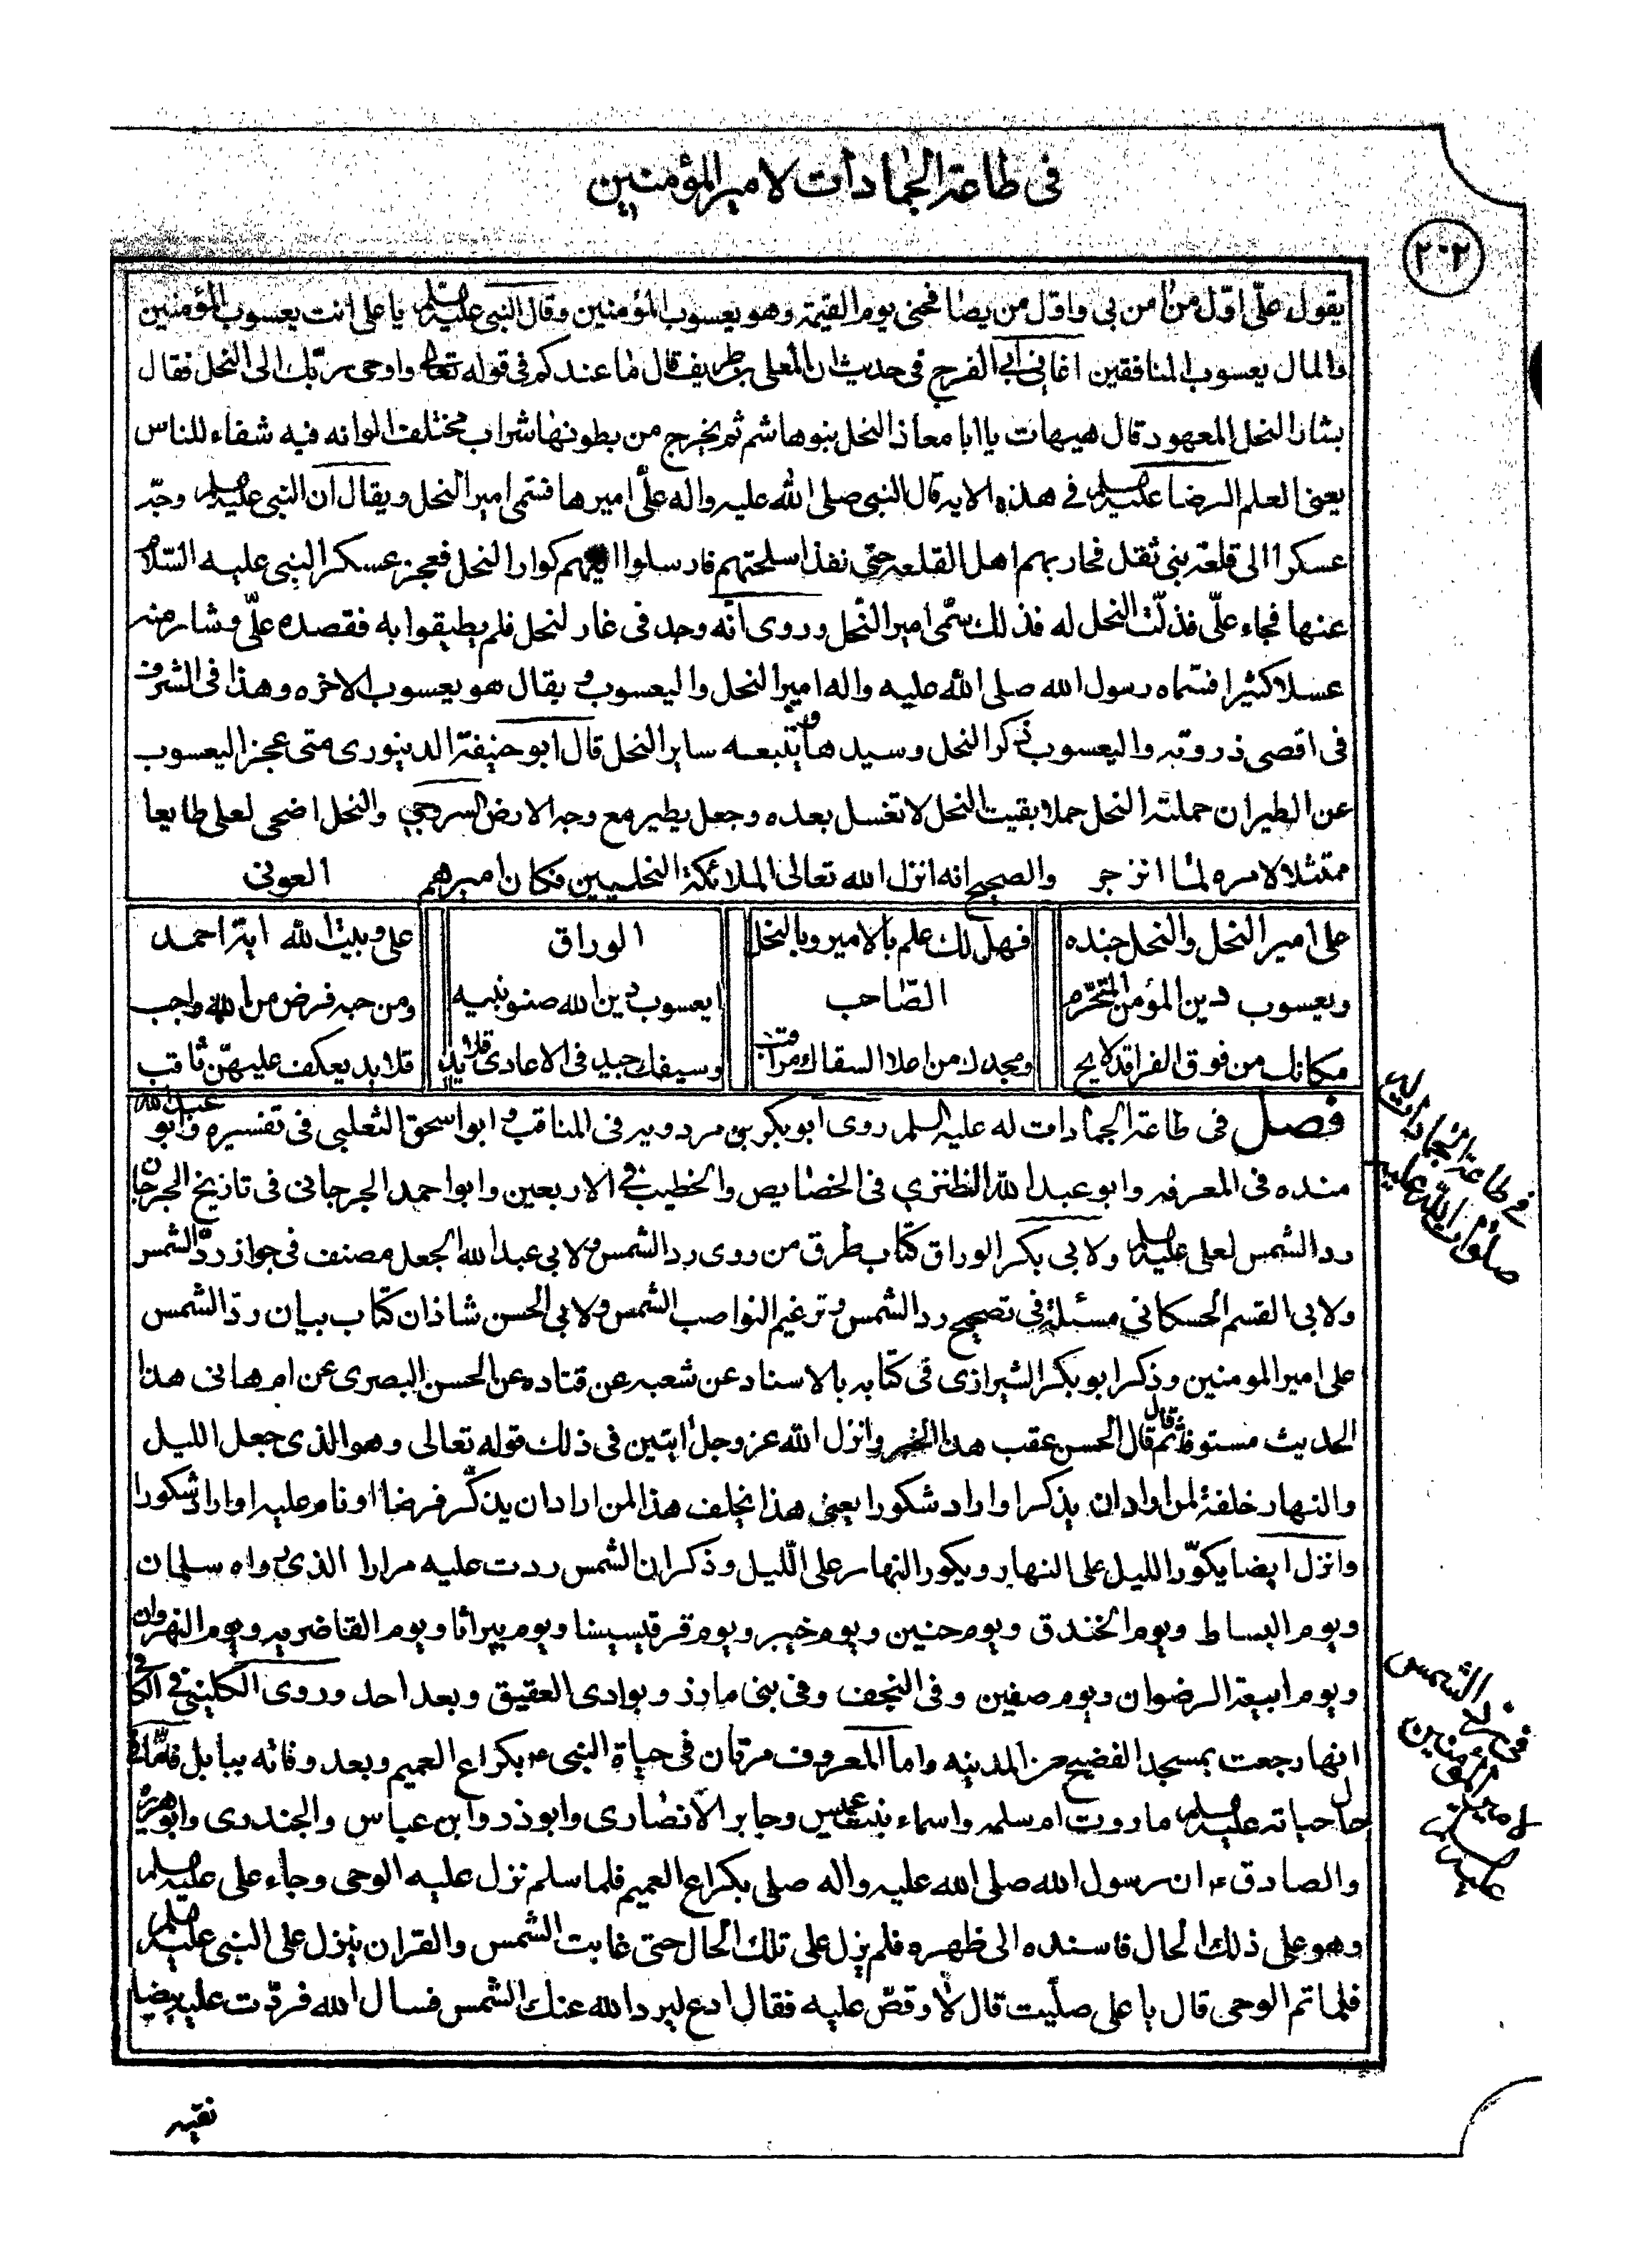 فى طاعة الجمادات لامير المؤمنين
٢٠٢
يقول علىّ اوّل من امن بى واوّل من يصافحنى يوم القيمة وهو يعسوب المؤمنين وقال النبى عليه السلم يا على انت يعسوب المؤمنين
والمال يعسوب المنافقين اغانى ابى الفرج فى حديث ان المعلى بن طريف قال ما عندكم فى قوله تعالى واوحى ربّك الى النحل فقال
بشار النحل المعهود قال هيهات يا ابا معاذ النحل بنو هاشم ثم يخرج من بطونها شراب مختلف الوانه فيه شفاء للناس
يعنى العلم الرضا عليه السلم فى هذه الايه قال النبى صلى الله عليه واله علىّ اميرها فسمى امير النحل ويقال ان النبى عليه السلم وجّه
عسكرا الى قلعة بنى ثقل فحاربهم اهل القلعه حتى نفذ اسلحتهم فارسلوا اليهم كوار النحل فعجز عسكر النبى عليه السّلام
عنها فجاء علىّ فذلّت النحل له فذلك سمّى امير النّحل وروى انّه وجد فى غار لنحل فلم يطيقوا به فقصده علىّ وشار منه
عسلا كثيرا فسمّاه رسول الله صلى الله عليه واله امير النحل واليعسوب و يقال هو يعسوب الاخره وهذا فى الشرف
فى اقصى ذروته واليعسوب ذكر النحل وسيدها ويتبعه ساير النحل قال ابو حنيفة الدينورى متى عجز اليعسوب
عن الطيران حملته النحل حملا وبقيت النحل لا تغسل بعده وجعل يطير مع وجه الارض السروجى والنحل اضحى لعلى طايعا
ممتثلا لامره لمّا انزجر والصحيح انه انزل الله تعالى الملائكة النحليين فكان اميرهم العونى
على امير النحل والنحل جنده فهل لك علم بالامير وبالنحل الوراق على وبيت الله اية احمد
ويعسوب دين المؤمن المتحرّم الصّاحب ايعسوب دين الله صنو نبيه ومن حبه فرض من الله واجب
مكانك من فوق الفراقد لايح ومجدك من اعلا السقاك مراقب وسيفك جيد فى الاعادى قلايد قلايد يعكف عليهنّ ثاقب
فصل فى طاعة الجمادات له عليه السلم روى ابو بكر بن مردويه فى المناقب و ابو اسحق الثعلبى فى تفسيره وابو عبد الله
منده فى المعرفه وابو عبد الله النظنزى فى الخصايص والخطيب فى الاربعين وابو احمد الجرجانى فى تاريخ الجرجان
رد الشمس لعلى عليه السلم ولابى بكر الوراق كتاب طرق من روى رد الشمس ولابى عبد الله الجعل مصنف فى جواز ردّ الشمس
ولابى القسم الحسكانى مسئلة فى تصحيح رد الشمس وترغيم النواصب الشمس ولابى الحسن شاذان كتاب بيان ردّ الشمس
على امير المومنين وذكر ابو بكر الشيرازى فى كتابه بالاسناد عن شعبه عن قتاده عن الحسن البصرى عن ام هانى هذا
الحديث مستوفا ثم قال قال الحسن عقب هذا الخبر وانزل الله عز وجل ايتين فى ذلك قوله تعالى وهو الذى جعل الليل
والنهار خلفة لمن اراد ان يذكر او اراد شكورا يعنى هذا يخلف هذا لمن اراد ان يذكّر فرضا او نام عليه او اراد شكورا
وانزل ايضا يكوّر الليل على النهار ويكور النهار على الّليل وذكر ان الشمس ردت عليه مرارا الذى رواه سلمان
ويوم البساط ويوم الخندق ويوم حنين ويوم خيبر ويوم قرقيسيا ويوم براثا ويوم الغاضريه ويوم النهروان
ويوم ابيعة الرضوان ويوم صفين وفى النجف وفى بنى مازر وبوادى العقيق وبعد احد وروى الكلينى فى الكافى
انها رجعت بمسجد الفضيح من المدينه واما المعروف مرتان فى حياة النبى ء بكراع الغميم وبعد وفاته ببابل فامّا فى
حال حياته عليه السلم ما روت ام سلمه واسماء بنت عميس وجابر الانصارى وابو ذر وابن عباس والخدرى وابو هريره
والصادق ء ان رسول الله صلى الله عليه واله صلى بكراع الغميم فلما سلم نزل عليه الوحى وجاء على عليه السلم
وهو على ذلك الحال فاسنده الى ظهره فلم يزل على تلك الحال حتى غابت الشمس والقران ينزل على النبى عليه السلم
فلما تم الوحى قال يا على صلّيت قال لا وقصّ عليه فقال ادع ليرد الله عنك الشمس فسال الله فردّت عليه بيضا
نقيه
فى طاعة الجمادات له
صلوات الله عليه
فى رد الشمس
لامير المؤمنين
عليه السلم